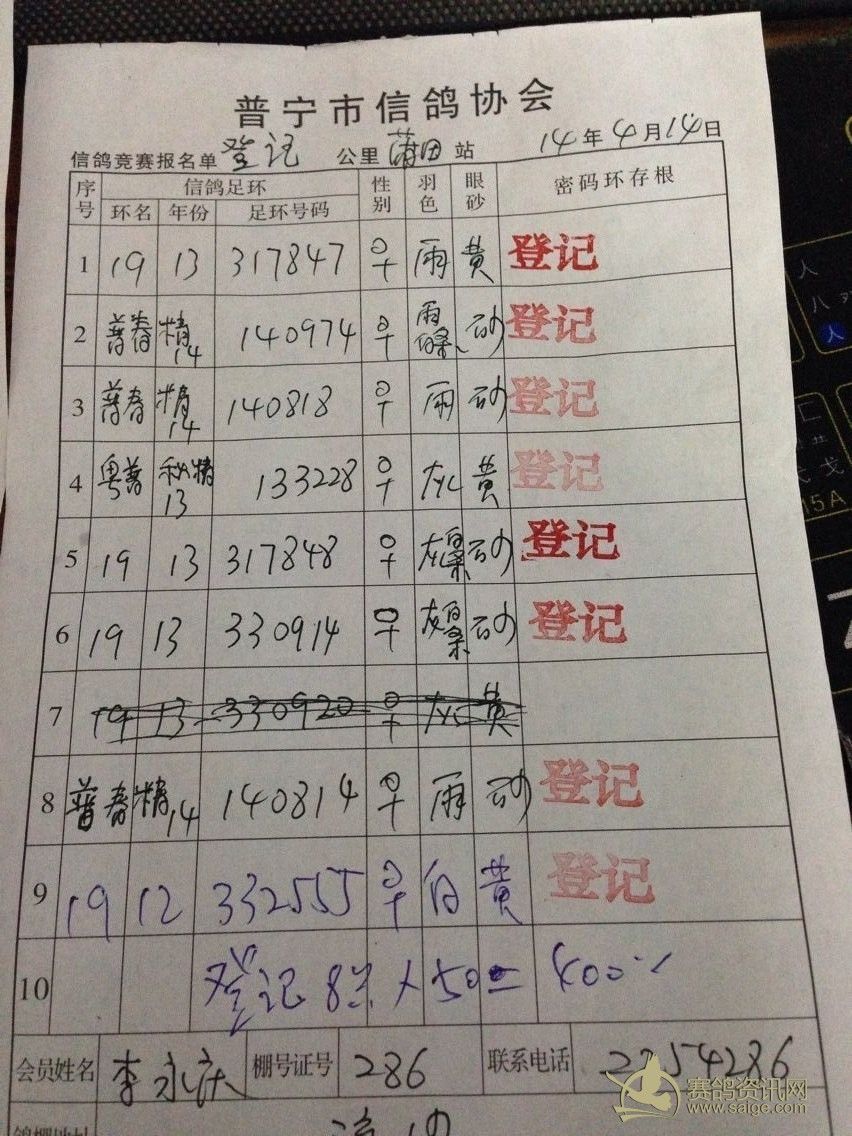 普宁市信鸽协会
信鸽竞赛报名单 登记 公里 莆田 站 14年4月14日
序号 信鸽足环 性别 羽色 眼砂 密码环存根
环名 年份 足环号码
1 19 13 317847 ♀ 雨 黄 登记
2 普春 精14 140974 ♀ 雨白条 砂 登记
3 普春 精14 140818 ♀ 雨 砂 登记
4 粤普 秋精13 133228 ♀ 灰 黄 登记
5 19 13 317848 ♀ 灰白条 砂 登记
6 19 13 330914 ♀ 灰白条 砂 登记
7 19 13 330920 ♀ 灰 黄
8 普春 精14 140814 ♀ 雨 砂 登记
9 19 12 332555 ♀ 白 黄 登记
10 登记 8只×50=400
会员姓名 李永庆 棚号证号 286 联系电话 2254286
鸽棚地址
赛鸽资讯网
www.saige.com
15A